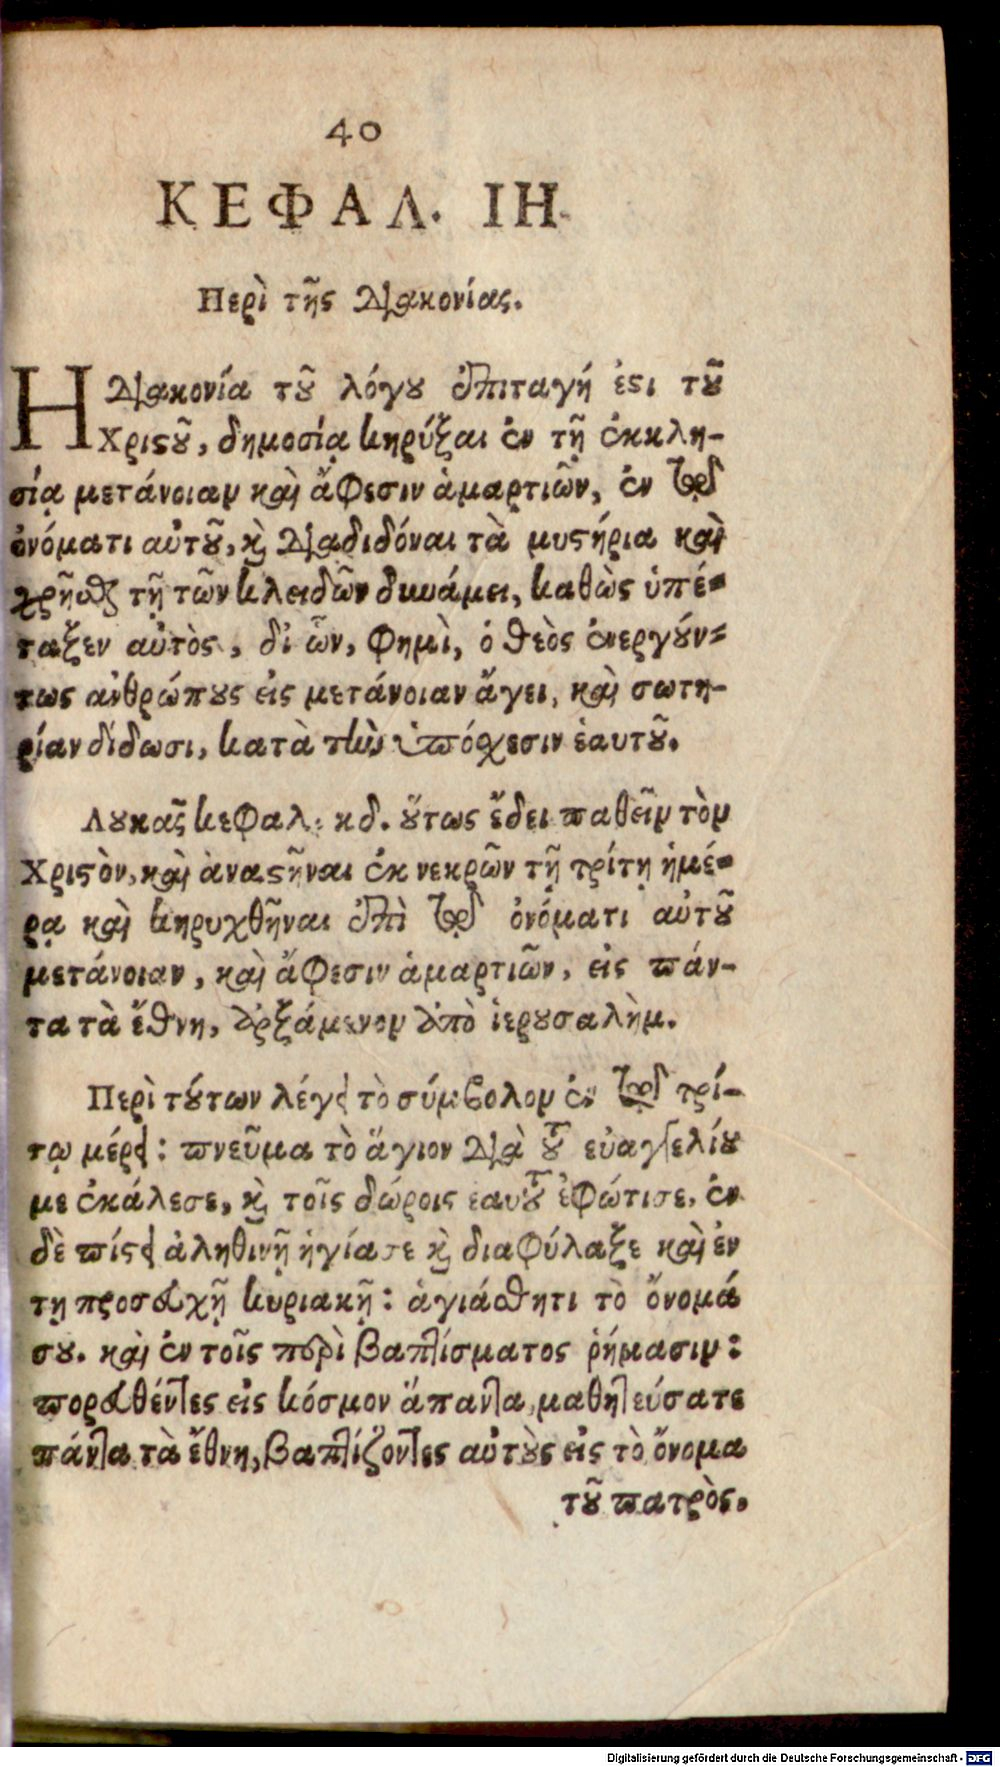 40
ΚΕΦΑΛ. ΙΗ
Περὶ τῆς διακονίας.
Η διακονία τοῦ λόγου ἐπιταγή ἐστι τοῦ
Χριστοῦ, δημοσίᾳ κηρύξαι ἐν τῇ ἐκκλη-
σίᾳ μετάνοιαν καὶ ἄφεσιν ἁμαρτιῶν, ἐν τῷ
ὀνόματι αὐτοῦ, καὶ διαδιδόναι τὰ μυστήρια καὶ
χρῆσθαι τῇ τῶν κλειδῶν δυνάμει, καθὼς ὑπέ-
ταξεν αὐτὸς, δι ὧν, φημὶ, ὁ θεὸς ἐνεργούν-
τως ἀνθρώπους εἰς μετάνοιαν ἄγει, καὶ σωτη-
ρίαν δίδωσι, κατὰ τὴν ὑπόσχεσιν ἑαυτοῦ.
Λουκᾶς κεφαλ. κδ. οὕτως ἔδει παθεῖν τὸν
Χριστὸν, καὶ ἀναστῆναι ἐκ νεκρῶν τῇ τρίτῃ ἡμέ-
ρᾳ καὶ κηρυχθῆναι ἐπὶ τῷ ὀνόματι αὐτοῦ
μετάνοιαν, καὶ ἄφεσιν ἁμαρτιῶν, εἰς πάν-
τα τὰ ἔθνη, ἀρξάμενον ἀπὸ ἱερουσαλὴμ.
Περὶ τούτων λέγει τὸ σύμβολον ἐν τῷ τρί-
τῳ μέρει: πνεῦμα τὸ ἅγιον διὰ τοῦ εὐαγγελίου
με ἐκάλεσε, καὶ τοῖς δώροις ἑαυτοῦ ἐφώτισε, ἐν
δὲ πίστει ἀληθινῇ ἡγίασε καὶ διαφύλαξε καὶ ἐν
τῃ προσευχῇ κυριακῇ: ἁγιάσθητι τὸ ὄνομά
σου. καὶ ἐν τοῖς περὶ βαπτίσματος ῥήμασιν:
πορευθέντες εἰς κόσμον ἅπαντα, μαθητεύσατε
πάντα τὰ ἔθνη, βαπτίζοντες αὐτοὺς εἰς τὸ ὄνομα
τοῦ πατρὸς.
Digitalisierung gefördert durch die Deutsche Forschungsgemeinschaft - DFG